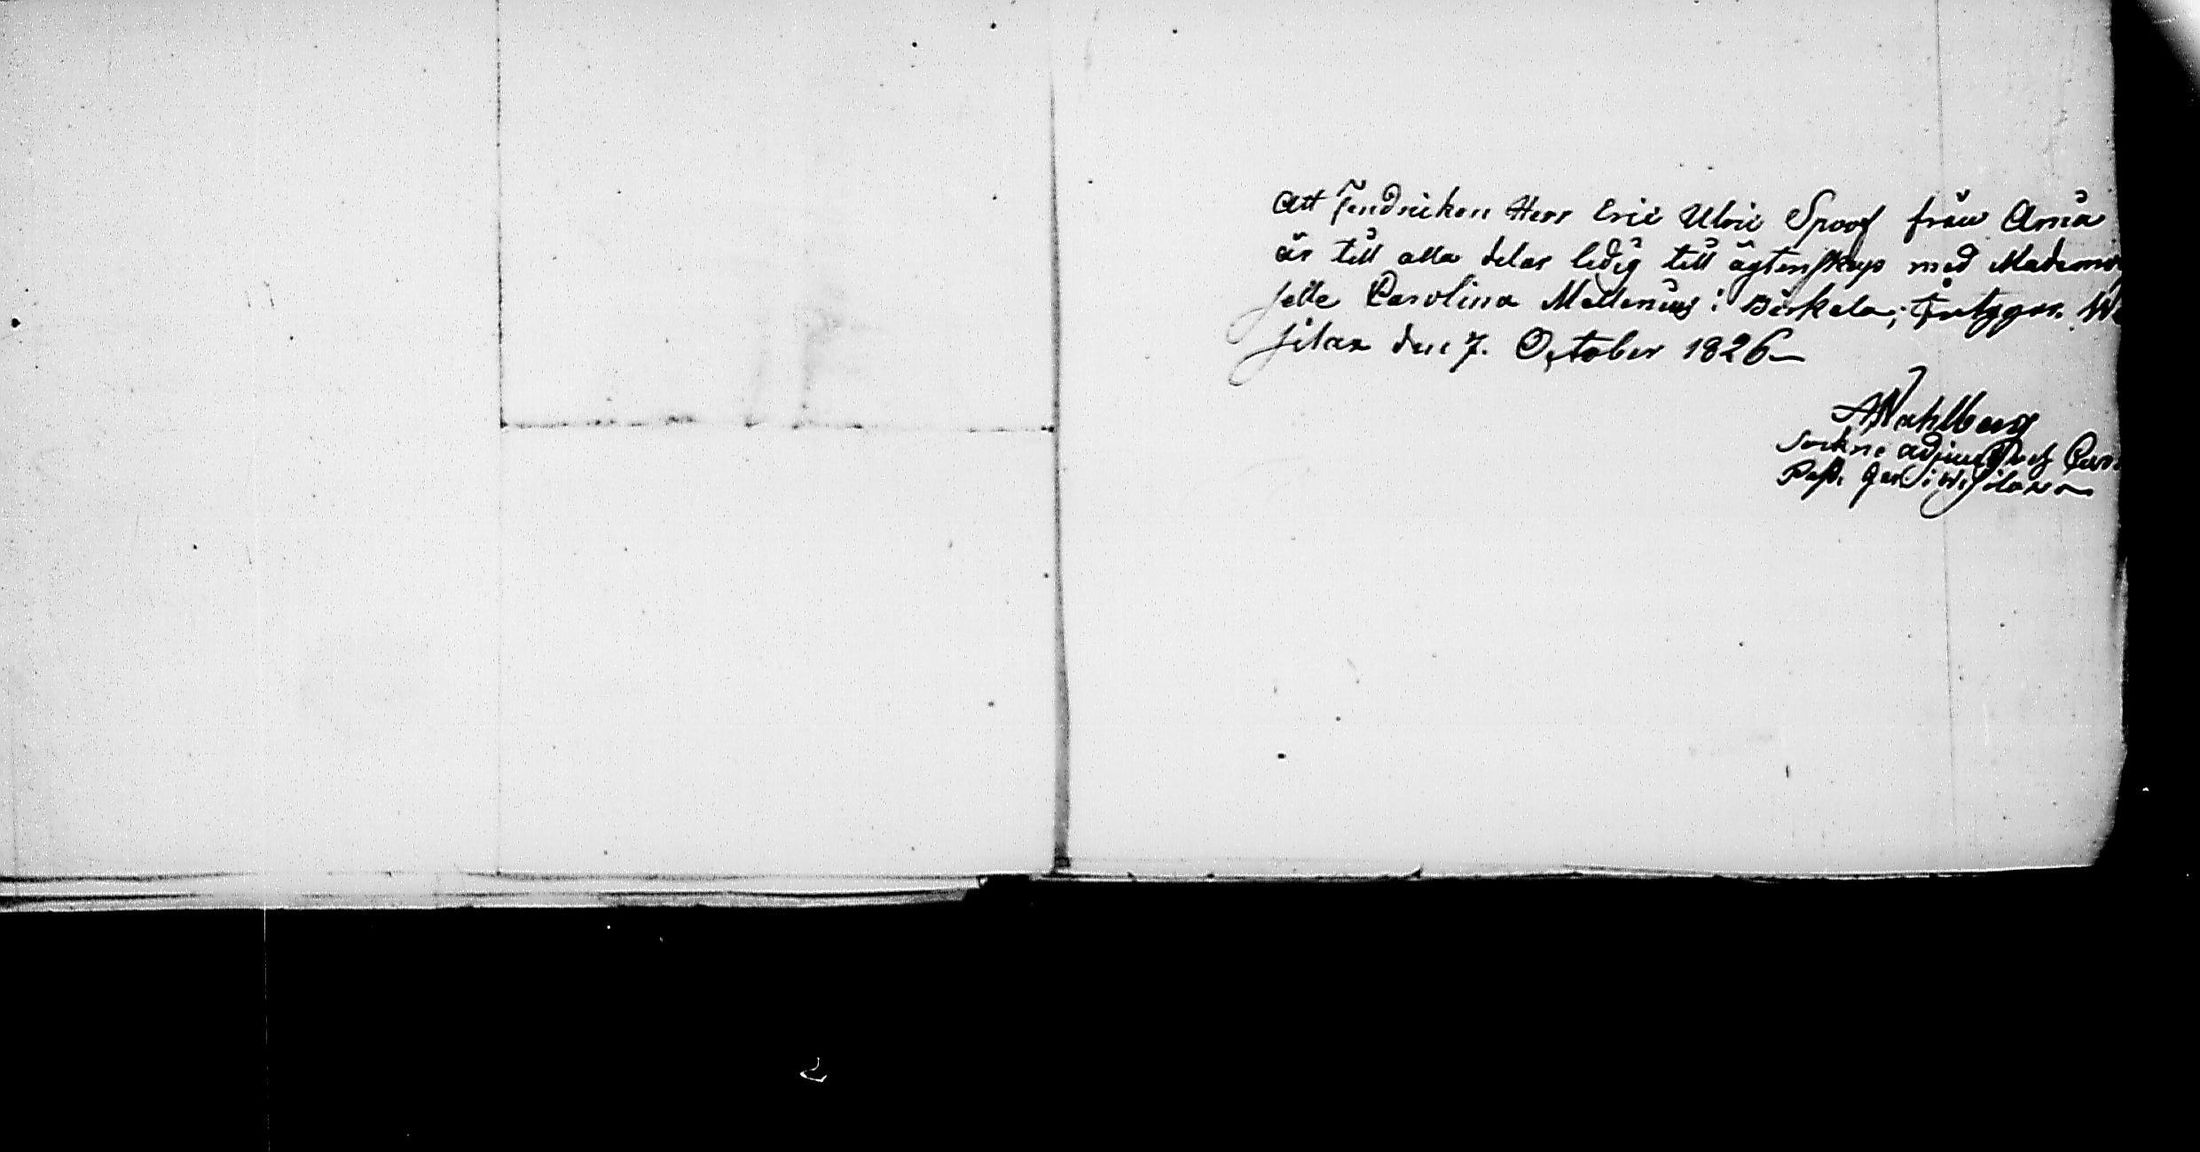 Att Fendricken Herr Eric Ulric Spoof från Arnä
är till alla delar ledig till ägtenskap med Mademoi
selle Carolina Mellenius i Birkala; intygar. We
silax den 7. October 1826
A Wahlberg
Sockne adjunct och
Past. i Wesilax